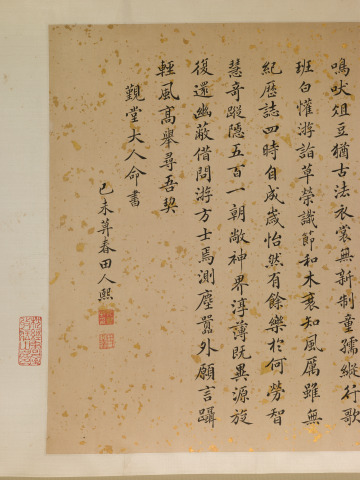 鳴吠俎豆猶古法衣裳無新制童孺縱行歌
班白懽游詣草榮識節和木衰知風厲雖無
紀歷誌四時自成歲怡然有餘樂於何勞智
慧奇蹤隱五百一朝敞神界淳薄既異源旋
復還幽蔽借問游方士焉測塵囂外願言躡
輕風高舉尋吾契
覲堂大人命書
己未莫春田人熙